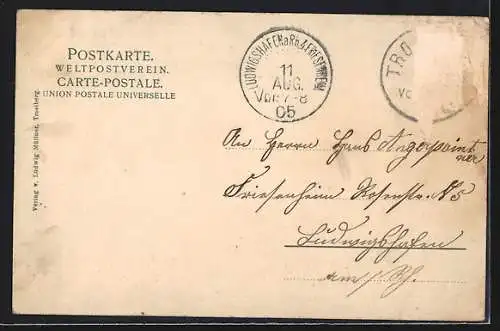 POSTKARTE.
WELTPOSTVEREIN.
CARTE-POSTALE.
UNION POSTALE UNIVERSELLE
Verlag v. Ludwig Müllner, Trostberg.
LUDWIGSHAFEN a. Rh. 4 (FRIESENHEIM)
11
AUG.
Vor. 7-8
05
TRO
Vo
An Herrn Hans
Friesenheim Rosenstr. N 5
Ludwigshafen
am / Rh.